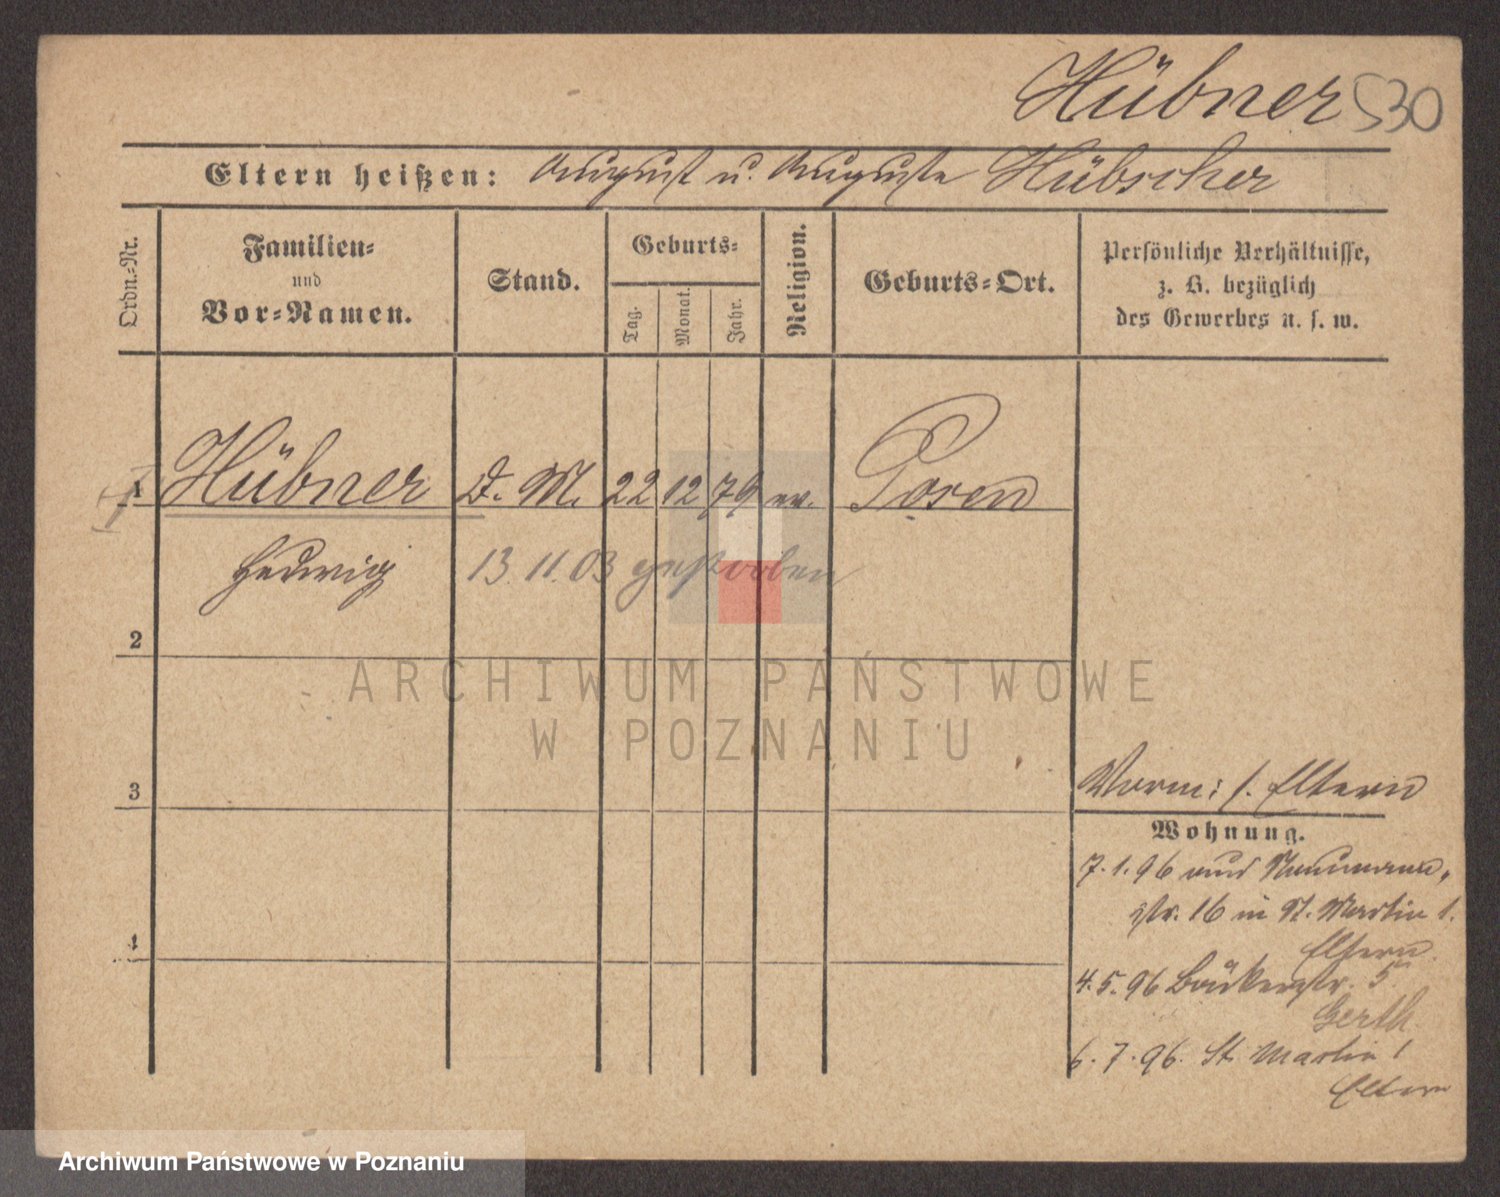 Hübner 530
Eltern heißen: August u. Auguste Hübscher
Ordn.-Nr.
Familien-
und
Vor-Namen.
Stand.
Geburts-
Tag.
Monat.
Jahr.
Religion.
Geburts-Ort.
Persönliche Verhältnisse,
z. B. bezüglich
des Gewerbes u. s. w.
1 Hübner D. M. 22 12 79 ev. Posen
Hedwig 13.11.03 gestorben
2
3
4
Vorm: s. Eltern
Wohnung.
7.1.96 aus Naumann-
str. 16 in St. Martin 1.
Eltern
4.5.96 Bäckerstr. 5
Gerth
6.7.96. St. Martin 1
Eltern
ARCHIWUM PAŃSTWOWE
W POZNANIU
Archiwum Państwowe w Poznaniu